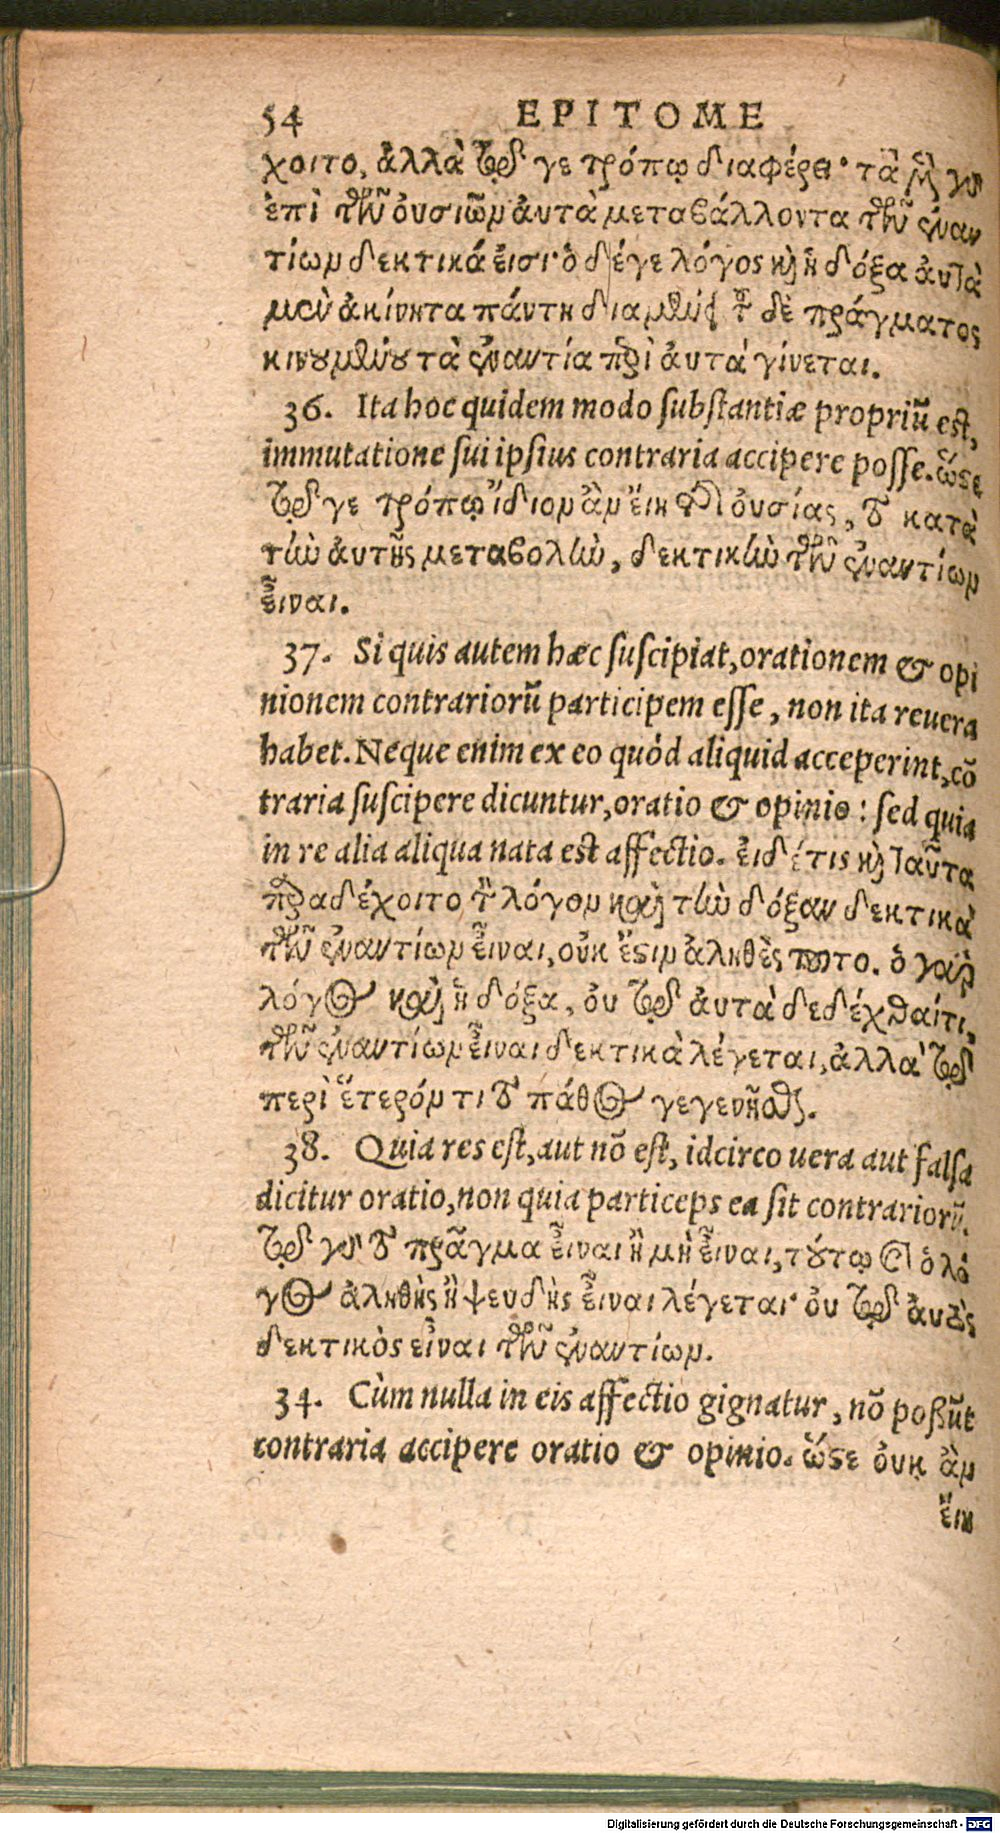 54 EPITOME
χοιτο, ἀλλὰ τῷ γε τρόπῳ διαφέρει· τὰ μὲν γὸ
ἐπὶ τῶν οὐσιῶν ἀυτὰ μεταβάλλοντα τῶν ἐναν
τίων δεκτικά ἐισι· ὁ δέγε λόγος καὶ ἡ δόξα ἀυτὰ
μεν ἀκίνητα πάντη διαμένει τοῦ δὲ πράγματος
κινουμένου τὰ ἐναντία περὶ ἀυτὰ γίνεται.
36. Ita hoc quidem modo substantiæ propriũ est,
immutatione sui ipsius contraria accipere posse. ὥστε
τῷ γε τρόπῳ ἴδιον ἂν ἔιη τῆς οὐσίας, τὸ κατὰ
τὴν ἀυτῆς μεταβολὴν, δεκτικὴν τῶν ἐναντίων
ἔιναι.
37. Si quis autem hæc suscipiat, orationem & opi
nionem contrariorũ participem esse, non ita reuera
habet. Neque enim ex eo quòd aliquid acceperint, cõ
traria suscipere dicuntur, oratio & opinio : sed quia
in re alia aliqua nata est affectio. ἐι δέ τις καὶ ταῦτα
παραδέχοιτο τὸν λόγον καὶ τὴν δόξαν δεκτικὰ
τῶν ἐναντίων ἔιναι, οὐκ ἔστιν ἀληθὲς τοῦτο. ὁ γὰρ
λόγος καὶ ἡ δόξα, οὐ τῷ ἀυτὰ δεδέχθαί τι,
τῶν ἐναντίων ἔιναι δεκτικὰ λέγεται, ἀλλὰ τῷ
περὶ ἕτερόν τι τὸ πάθος γεγενῆσθαι.
38. Quia res est, aut nõ est, idcirco uera aut falsa
dicitur oratio, non quia particeps ea sit contrariorũ.
τῷ γὸ τὸ πρᾶγμα ἔιναι ἢ μὴ ἔιναι, τούτῳ καὶ ὁ λό
γος ἀληθὴς ἢ ψευδὴς ἔιναι λέγεται· οὐ τῷ ἀυτὸς
δεκτικὸς εἶναι τῶν ἐναντίων.
34. Cùm nulla in eis affectio gignatur, nõ poßũt
contraria accipere oratio & opinio. ὥστε οὐκ ἂν
ἔιη